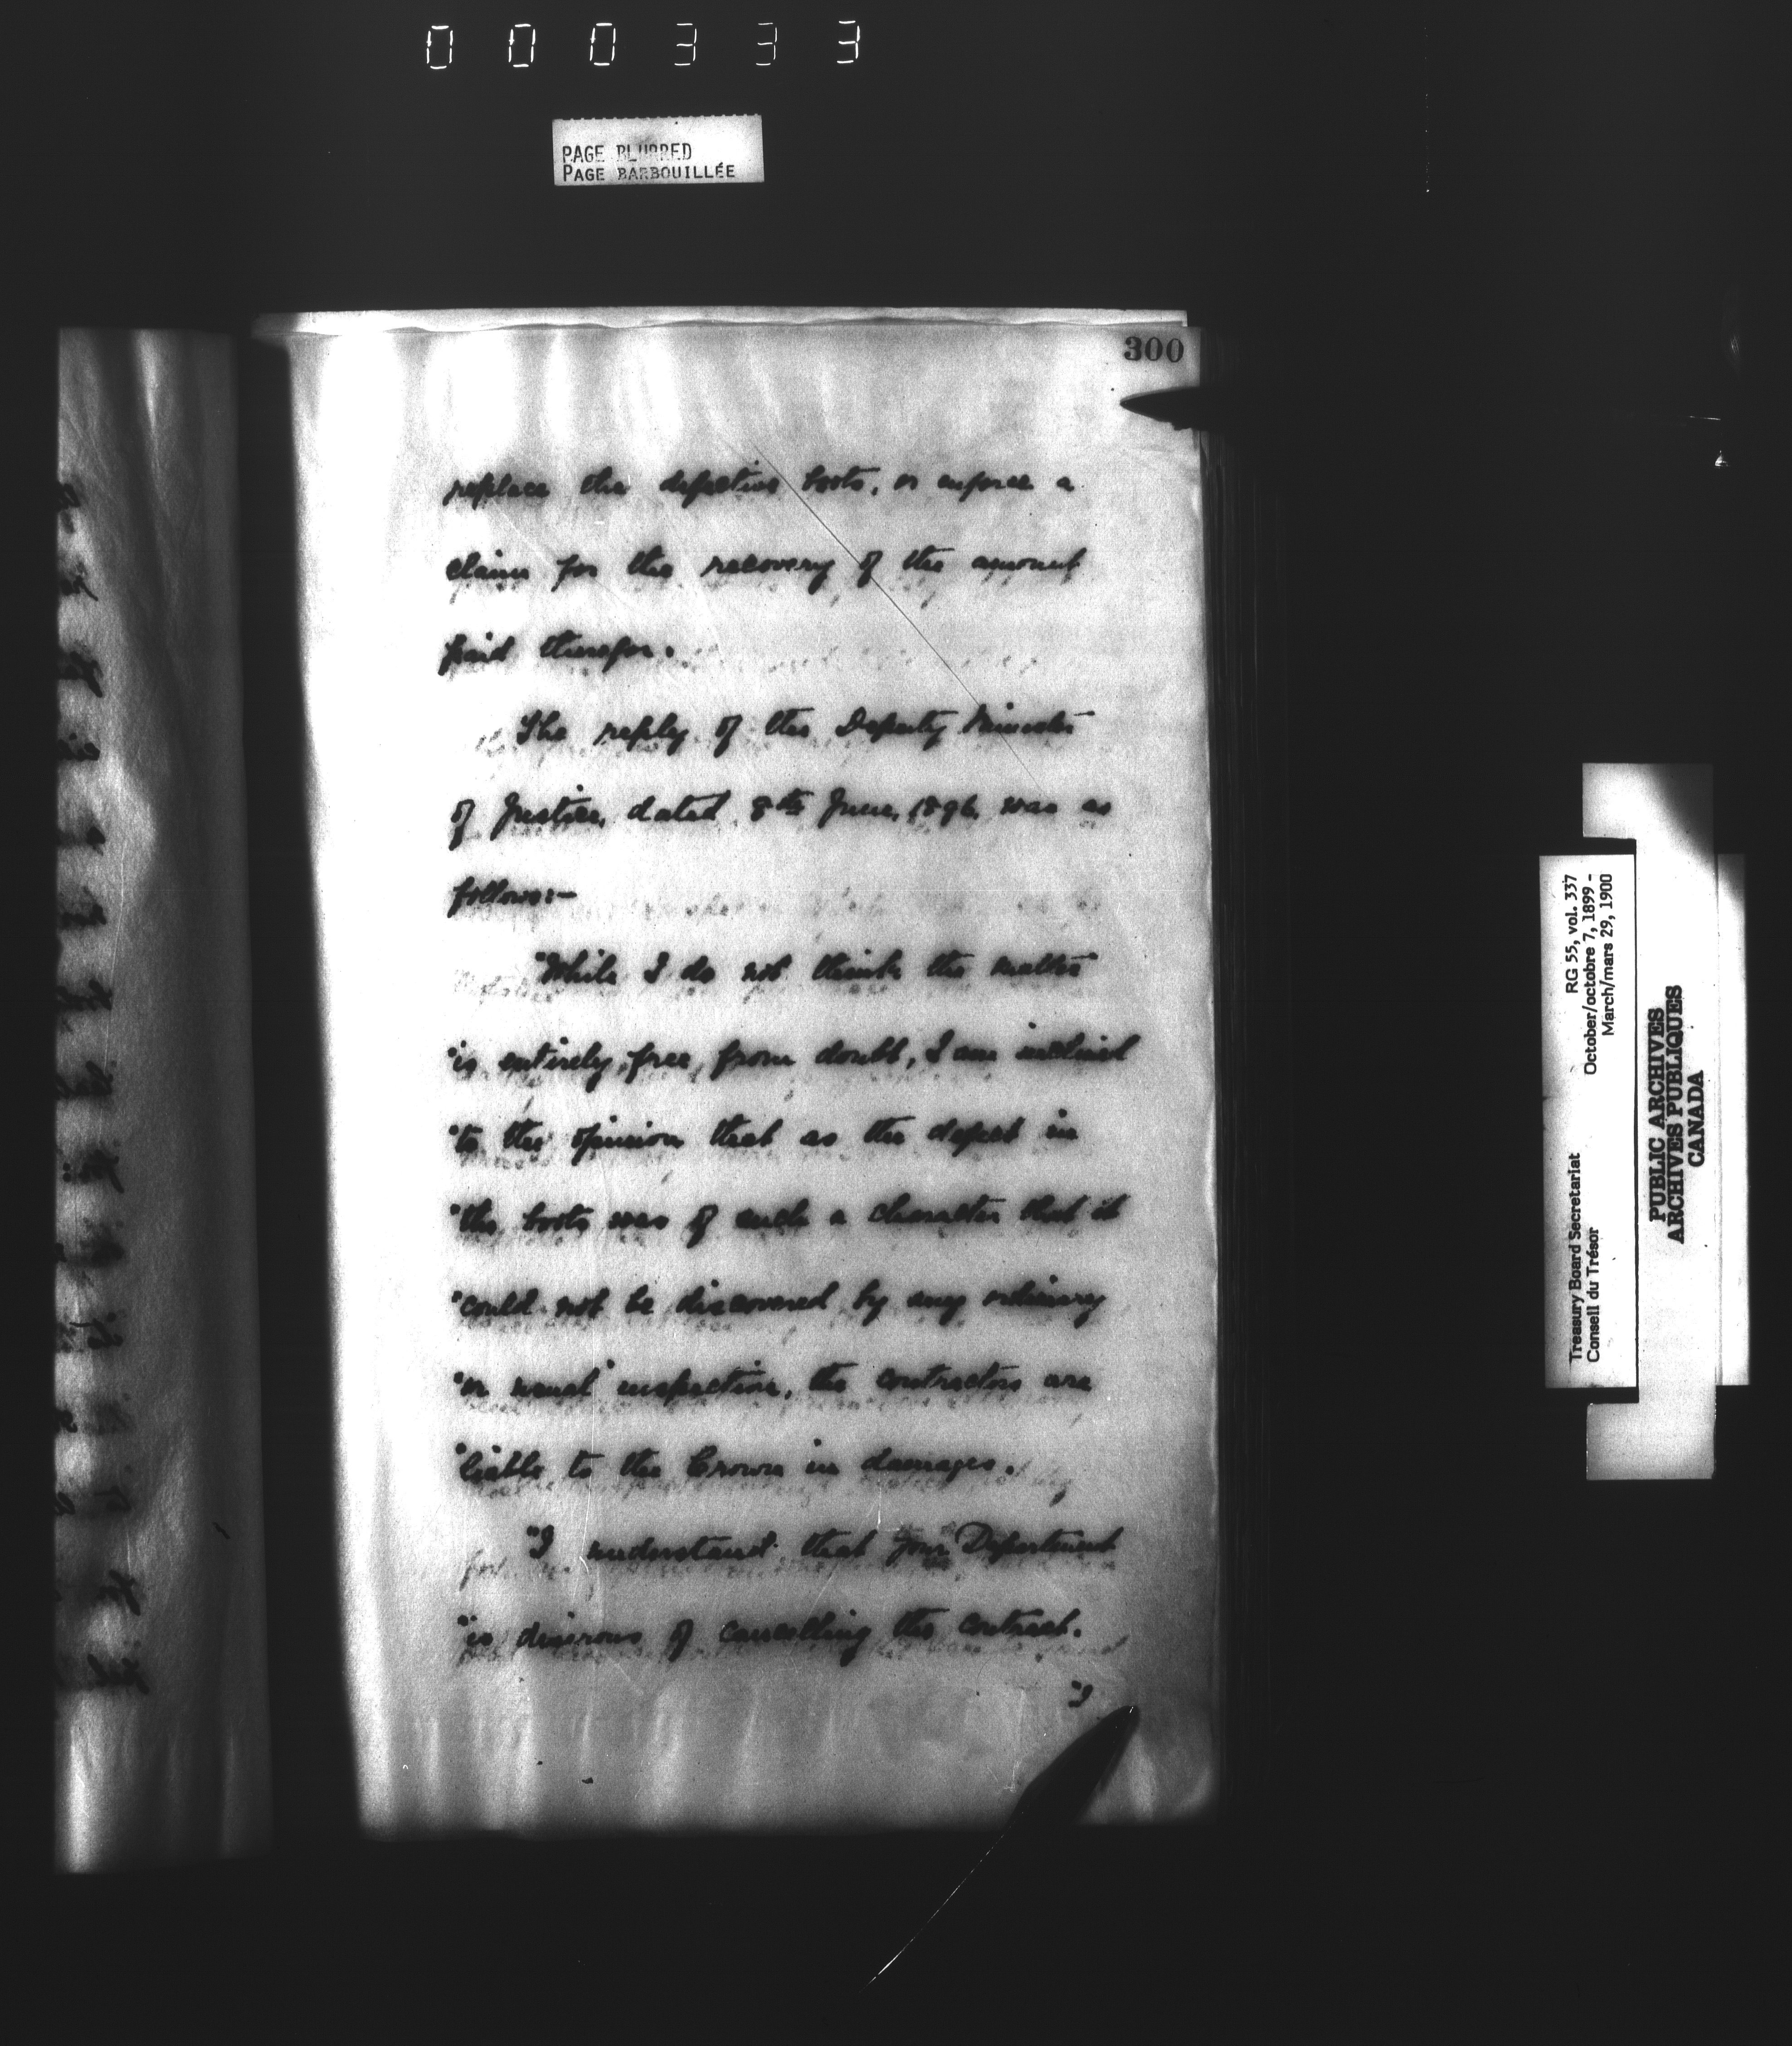 000333
PAGE BLURRED
PAGE BARBOUILLÉE
300
replace the defective boots, or enforce a
claim for the recovery of the amount
paid therefor.
The reply of the Deputy Minister
of Justice, dated 8th June, 1896, was as
follows:-
"While I do not think the matter
"is entirely free from doubt, I am inclined
"to the opinion that as the defect in
"the boots was of such a character that it
"could not be discovered by any ordinary
"or usual inspection, the contractors are
"liable to the Crown in damages.
"I understand that your Department
"is desirous of cancelling the contract.
"I
Treasury Board Secretariat
Conseil du Trésor
RG 55, vol. 337
October/octobre 7, 1899 -
March/mars 29, 1900
PUBLIC ARCHIVES
ARCHIVES PUBLIQUES
CANADA